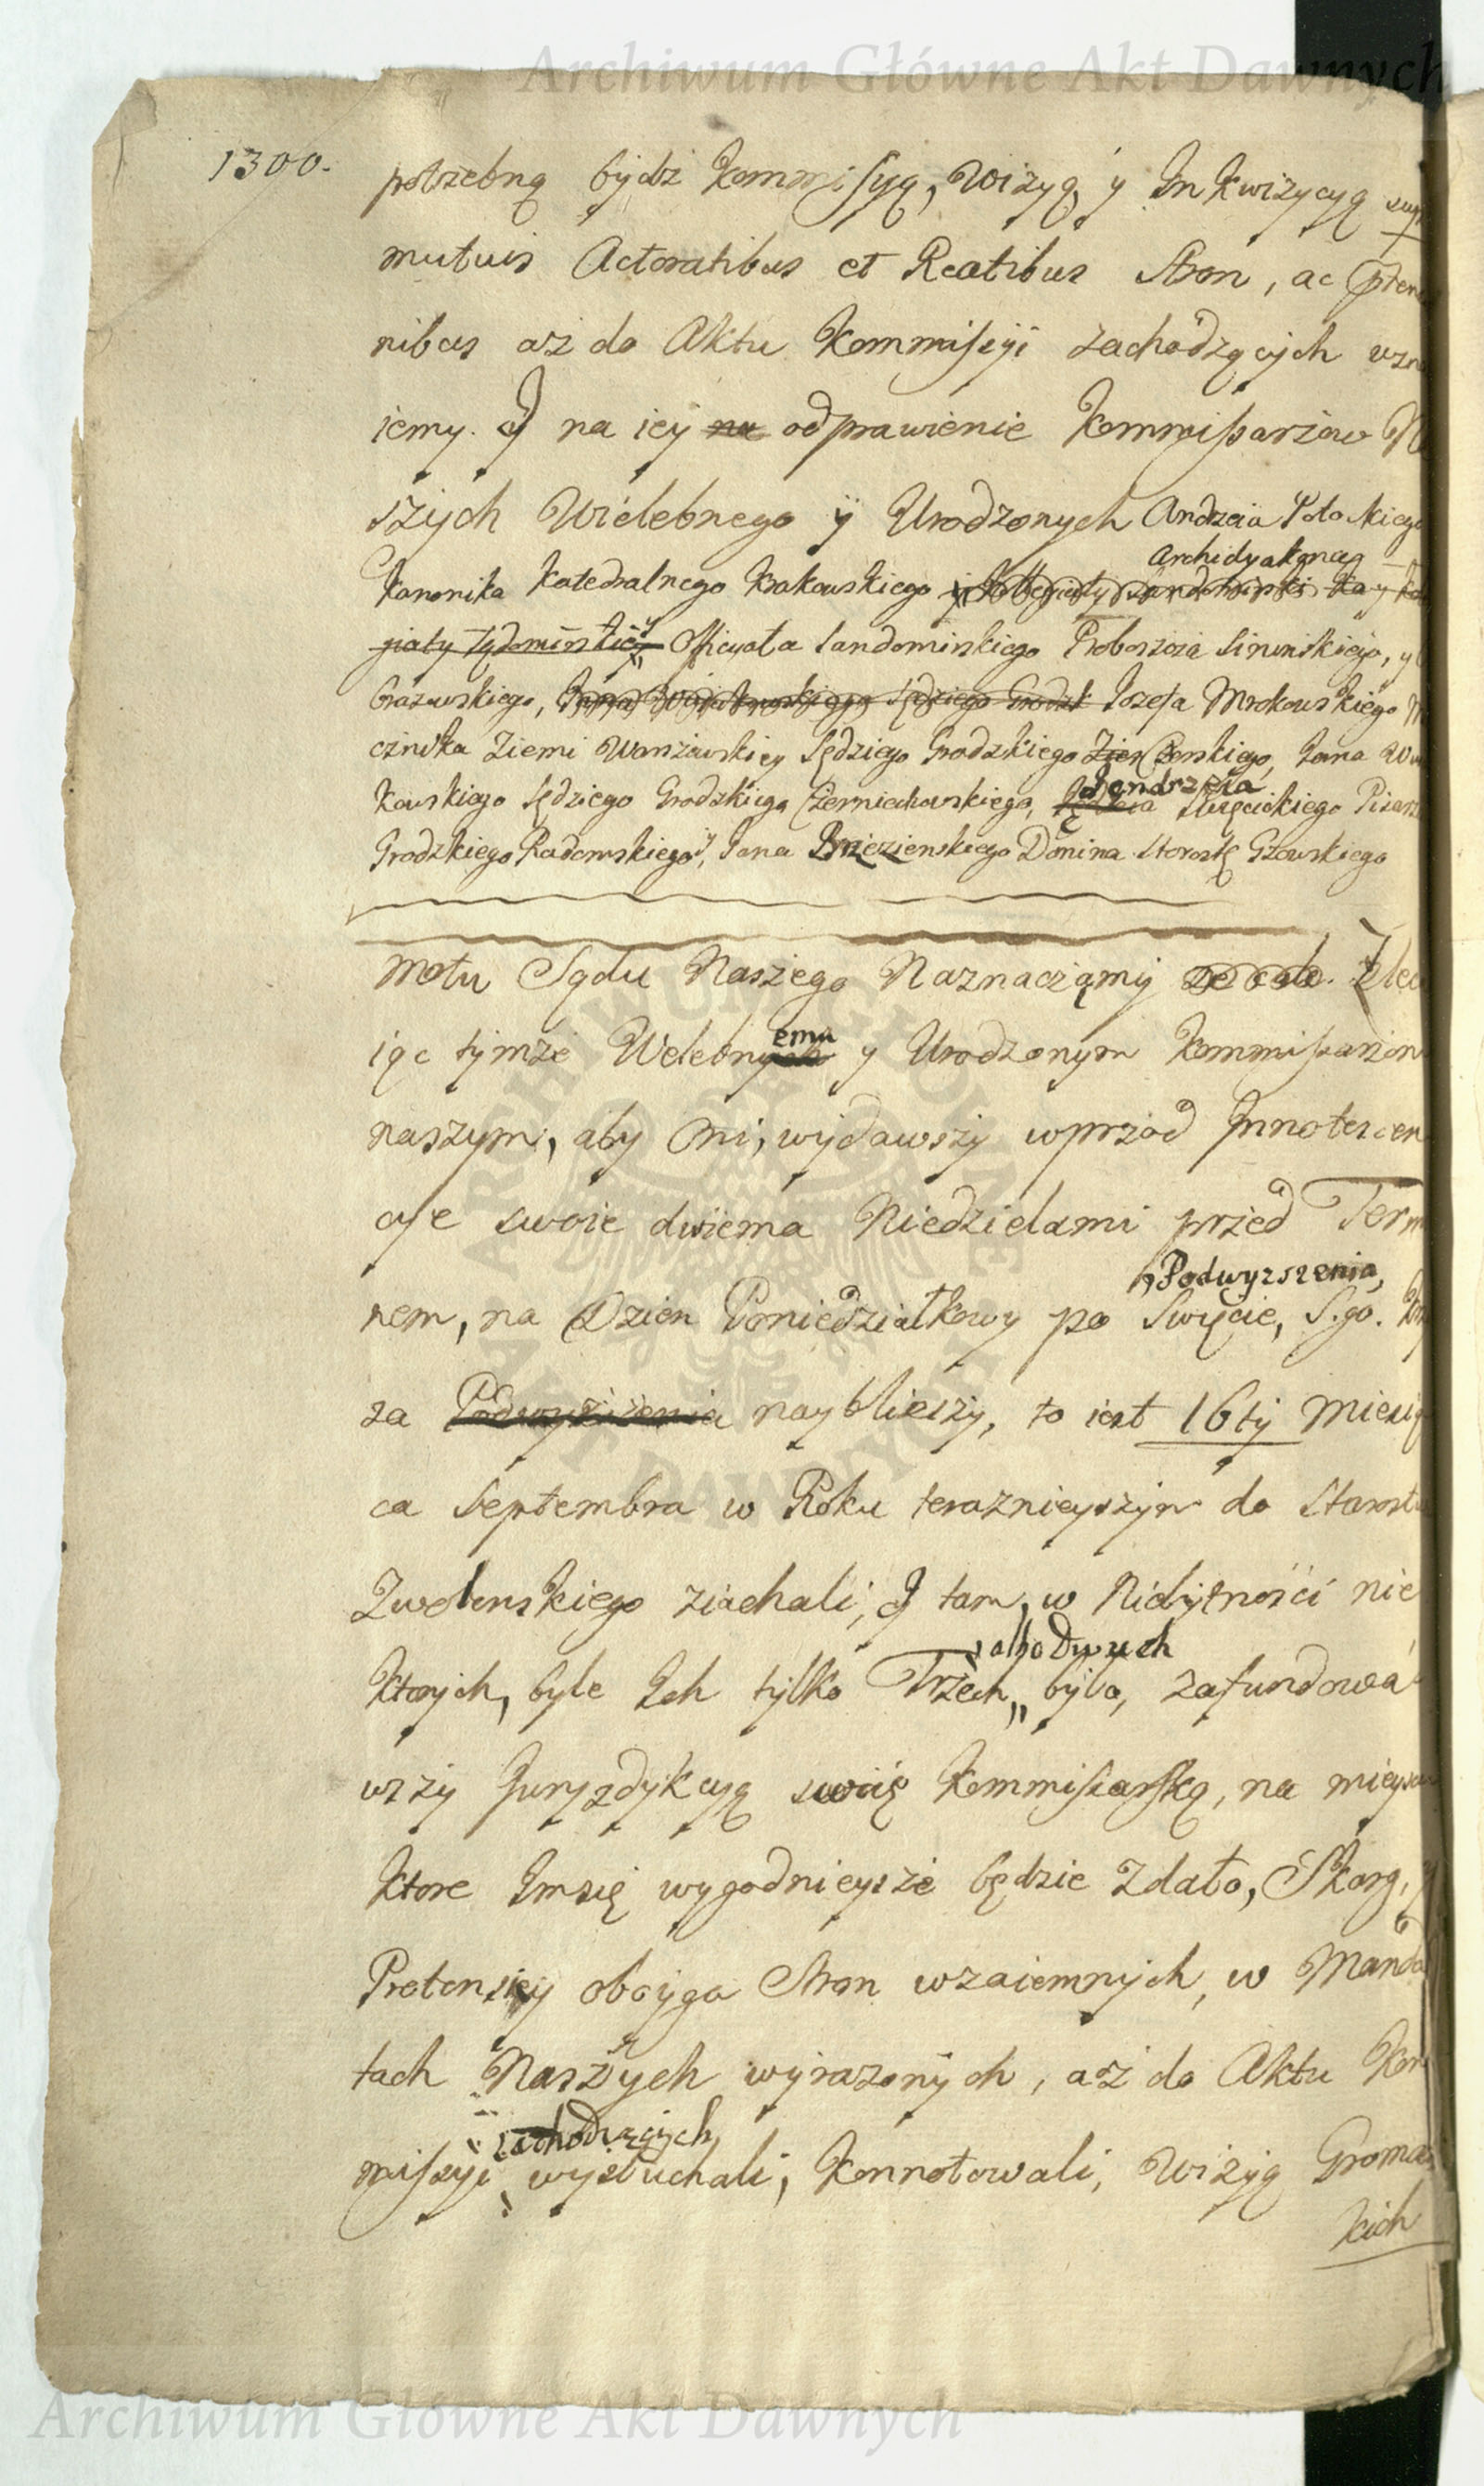 Archiwum Główne Akt Dawnych
1300.
potrzebną bydź Kommissyą, Wizyą, y Inkwizycyą
mutuis Actoratibus et Reatibus Stron, ac
nibus aż do Aktu Kommissyi zachodzących uzna
iemy. Y na iey na odprawienie Kommissarzow
szych Wielebnego y Urodzonych Andrzeia
Archidyakona
Kanonika Katedralnego Krakowskiego y Kollegiaty Sandomirski
giaty Officyała Sandomirskiego Proboszcza
Sędziego Grodzk Jozefa Mrokowskiego
cznika Ziemi Warszawskiey Sędziego Grodzkiego Czerskiego, Jana
Jendrzeia
kowskiego Sędziego Grodzkiego Czerniechowskiego, Święcickiego Pisarz
Grodzkiego Radomskiego, y Jana Brzezienskiego Donina Starostę
motu Sądu Naszego Naznaczamy Zlec
emu
iąc tymże Wielebnych y Urodzonym Kommissarzom
naszym, aby Oni, wydawszy wprzod Innotescen
cye swoie dwiema Niedzielami przed Term
Podwyzszenia,
nem, na Dzien Poniedziałkowy po Swięcie, S.go.
za Podwyższenia naybliższy, to iest 16ty Miesią
ca Septembra w Roku teraznieyszym do Starost
Zwolenskiego ziachali, Y tam, w Niebytności nie
albo Dwuch
ktorych, byle Ich tylko Trzech było, zafundowa
wszy Juryzdykcyą swoię Kommissarską, na mieysc
ktore Im się wygodnieysze będzie zdało, Skarg, y
Pretensiy oboyga Stron wzaiemnych, w Manda
tach Naszych wyrażonych, aż do Aktu Kom
zachodzących
missyi wysłuchali, Konnotowali, Wizyą Gromadz
kich
Archiwum Główne Akt Dawnych